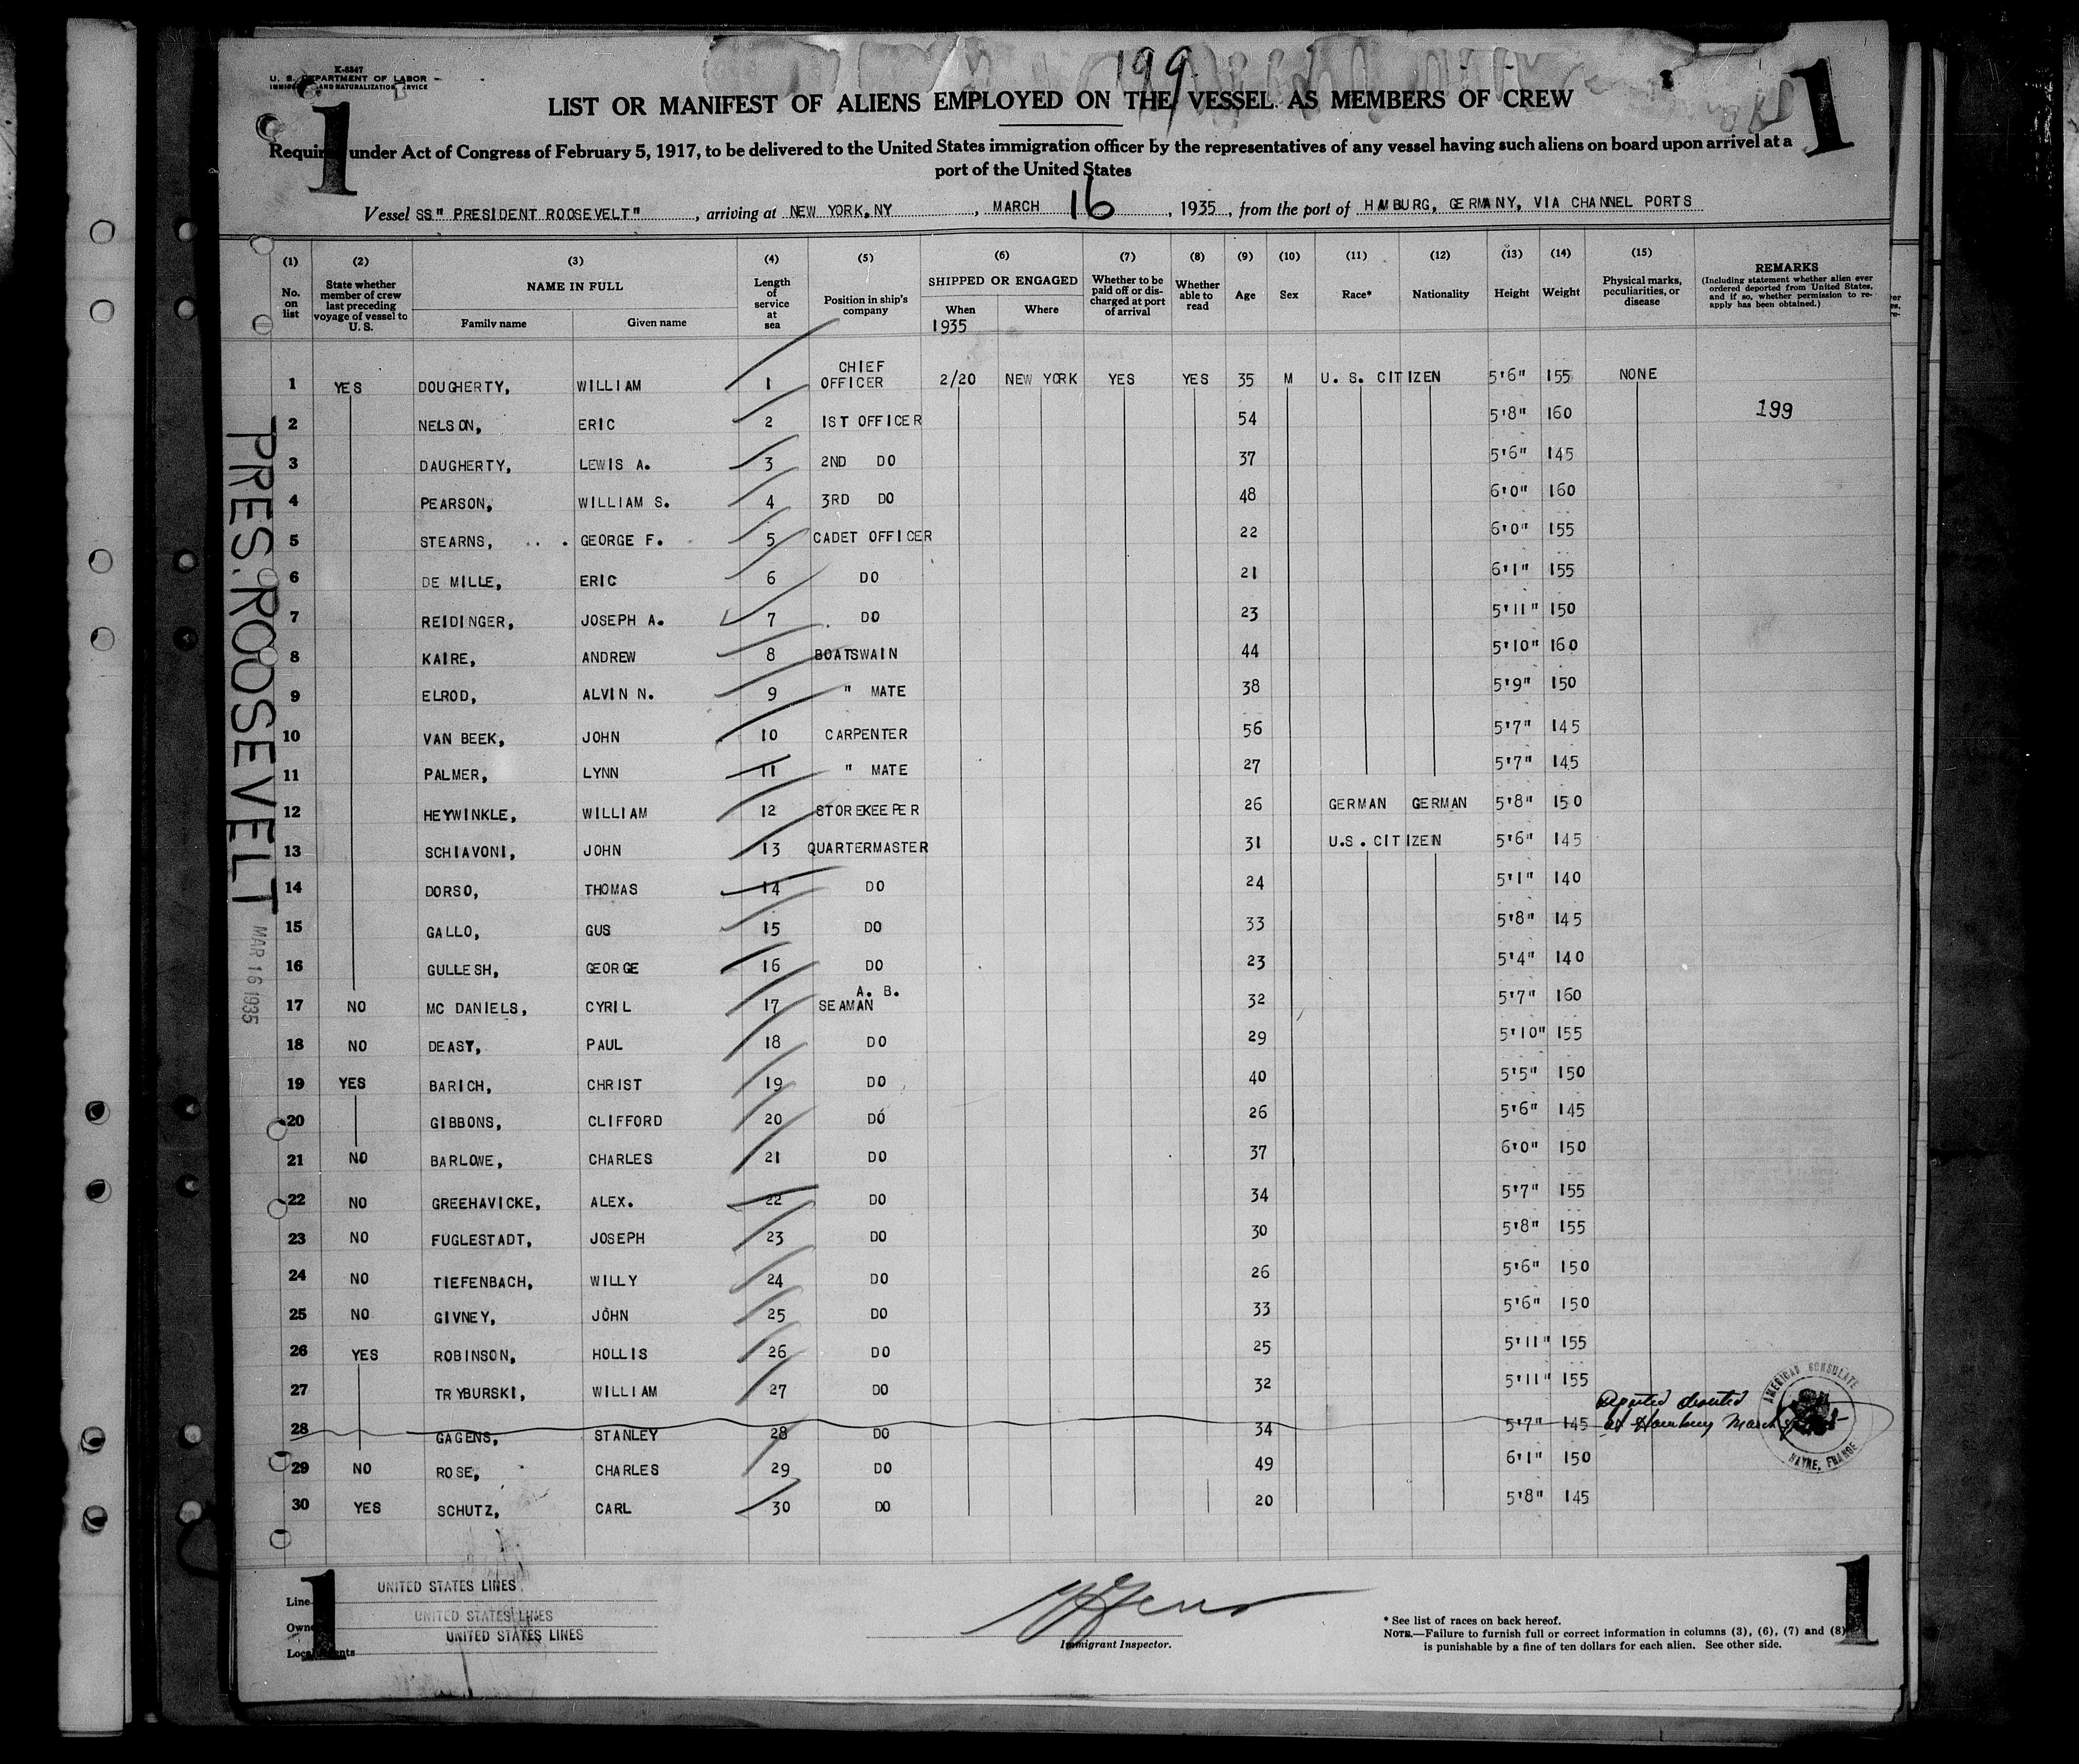 199
K-8847
U. S. DEPARTMENT OF LABOR
AND NATURALIZATION SERVICE
1 1
LIST OR MANIFEST OF ALIENS EMPLOYED ON THE VESSEL AS MEMBERS OF CREW
Required under Act of Congress of February 5, 1917, to be delivered to the United States immigration officer by the representatives of any vessel having such aliens on board upon arrival at a
port of the United States
Vessel SS" PRESIDENT ROOSEVELT" , arriving at NEW YORK, NY , MARCH 16 , 1935 , from the port of HAMBURG, GERMANY, VIA CHANNEL PORTS
(1) No. on list
(2) State whether member of crew last preceding voyage of vessel to U. S.
(3) NAME IN FULL Family name Given name
(4) Length of service at sea
(5) Position in ship's company
(6) SHIPPED OR ENGAGED When Where
1935
(7) Whether to be paid off or discharged at port of arrival
(8) Whether able to read
(9) Age
(10) Sex
(11) Race*
(12) Nationality
(13) Height
(14) Weight
(15) Physical marks, peculiarities, or disease
REMARKS (Including statement whether alien ever ordered deported from United States, and if so, whether permission to re-apply has been obtained.)
1 YES DOUGHERTY, WILLIAM 1 CHIEF OFFICER 2/20 NEW YORK YES YES 35 M U. S. CITIZEN 5'6" 155 NONE
2 NELSON, ERIC 2 1ST OFFICER 54 5'8" 160 199
3 DAUGHERTY, LEWIS A. 3 2ND DO 37 5'6" 145
4 PEARSON, WILLIAM S. 4 3RD DO 48 6'0" 160
5 STEARNS, GEORGE F. 5 CADET OFFICER 22 6'0" 155
6 DE MILLE, ERIC 6 DO 21 6'1" 155
7 REIDINGER, JOSEPH A. 7 DO 23 5'11" 150
8 KAIRE, ANDREW 8 BOATSWAIN 44 5'10" 160
9 ELROD, ALVIN N. 9 " MATE 38 5'9" 150
10 VAN BEEK, JOHN 10 CARPENTER 56 5'7" 145
11 PALMER, LYNN 11 " MATE 27 5'7" 145
12 HEYWINKLE, WILLIAM 12 STOREKEEPER 26 GERMAN GERMAN 5'8" 150
13 SCHIAVONI, JOHN 13 QUARTERMASTER 31 U.S. CITIZEN 5'6" 145
14 DORSO, THOMAS 14 DO 24 5'1" 140
15 GALLO, GUS 15 DO 33 5'8" 145
16 GULLESH, GEORGE 16 DO 23 5'4" 140
17 NO MC DANIELS, CYRIL 17 A. B. SEAMAN 32 5'7" 160
18 NO DEASY, PAUL 18 DO 29 5'10" 155
19 YES BARICH, CHRIST 19 DO 40 5'5" 150
20 GIBBONS, CLIFFORD 20 DO 26 5'6" 145
21 NO BARLOWE, CHARLES 21 DO 37 6'0" 150
22 NO GREEHAVICKE, ALEX. 22 DO 34 5'7" 155
23 NO FUGLESTADT, JOSEPH 23 DO 30 5'8" 155
24 NO TIEFENBACH, WILLY 24 DO 26 5'6" 150
25 NO GIVNEY, JOHN 25 DO 33 5'6" 150
26 YES ROBINSON, HOLLIS 26 DO 25 5'11" 155
27 TRYBURSKI, WILLIAM 27 DO 32 5'11" 155
28 GAGENS, STANLEY 28 DO 34 5'7" 145
Reported deserted
at Hamburg March
AMERICAN CONSULATE
HAVRE, FRANCE
29 NO ROSE, CHARLES 29 DO 49 6'1" 150
30 YES SCHUTZ, CARL 30 DO 20 5'8" 145
PRES. ROOSEVELT
MAR 16 1935
Line UNITED STATES LINES
Owners UNITED STATES LINES
Local Agents UNITED STATES LINES
Immigrant Inspector.
* See list of races on back hereof.
NOTE.—Failure to furnish full or correct information in columns (3), (6), (7) and (8)
is punishable by a fine of ten dollars for each alien. See other side.
1 1